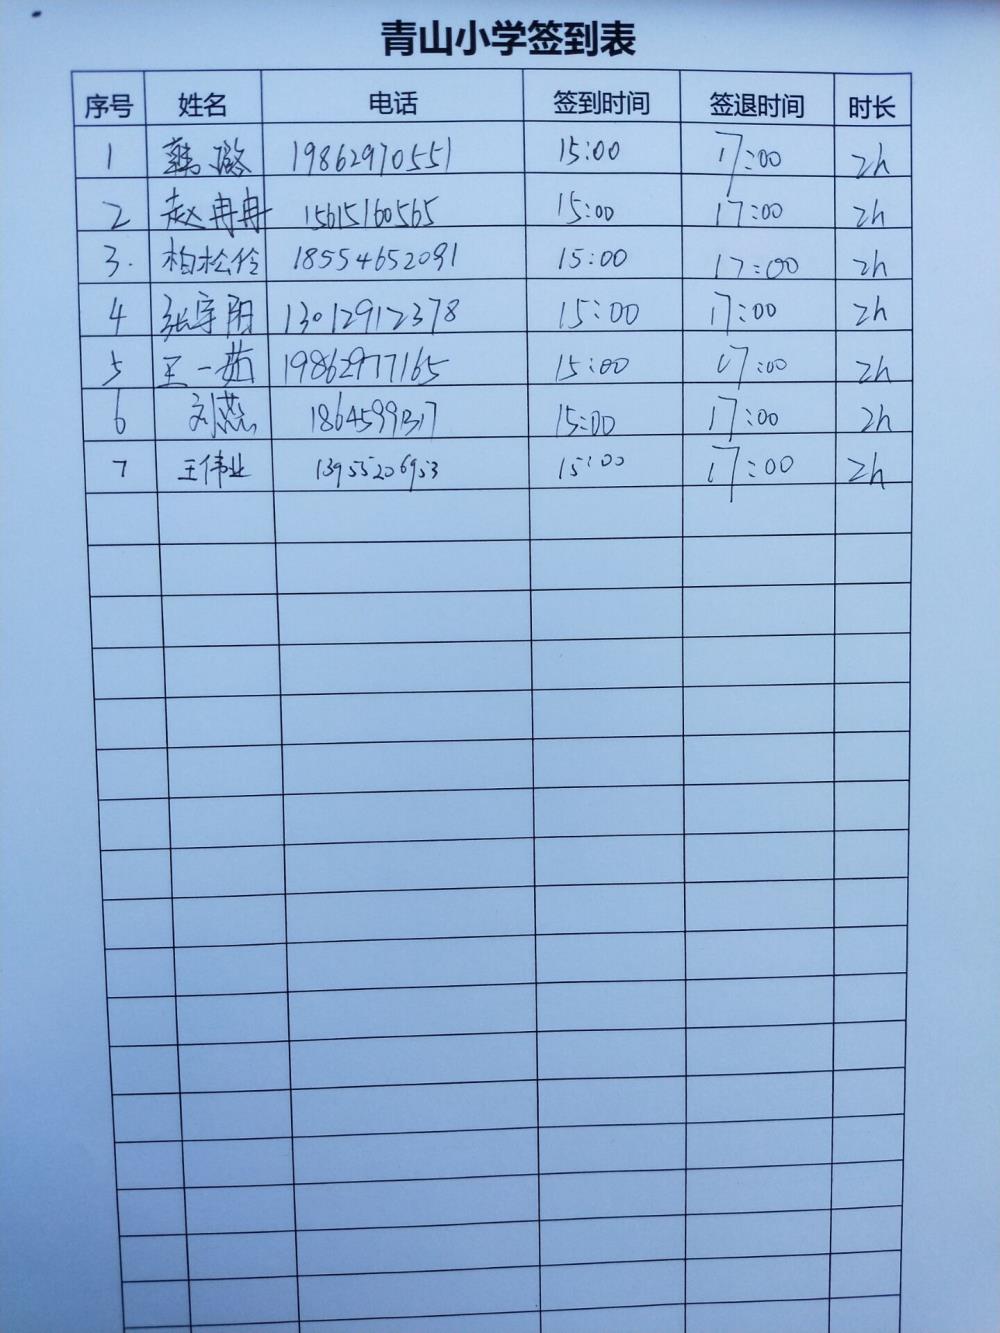 青山小学签到表
序号 姓名 电话 签到时间 签退时间 时长
1 韩璐 19862970551 15:00 17:00 2h
2 赵冉冉 15615160565 15:00 17:00 2h
3. 柏松伶 18554652091 15:00 17:00 2h
4 张宇阳 13012912378 15:00 17:00 2h
5 王一茹 19862977165 15:00 17:00 2h
6 刘燕 15:00 17:00 2h
7 王伟业 13955206953 15:00 17:00 2h